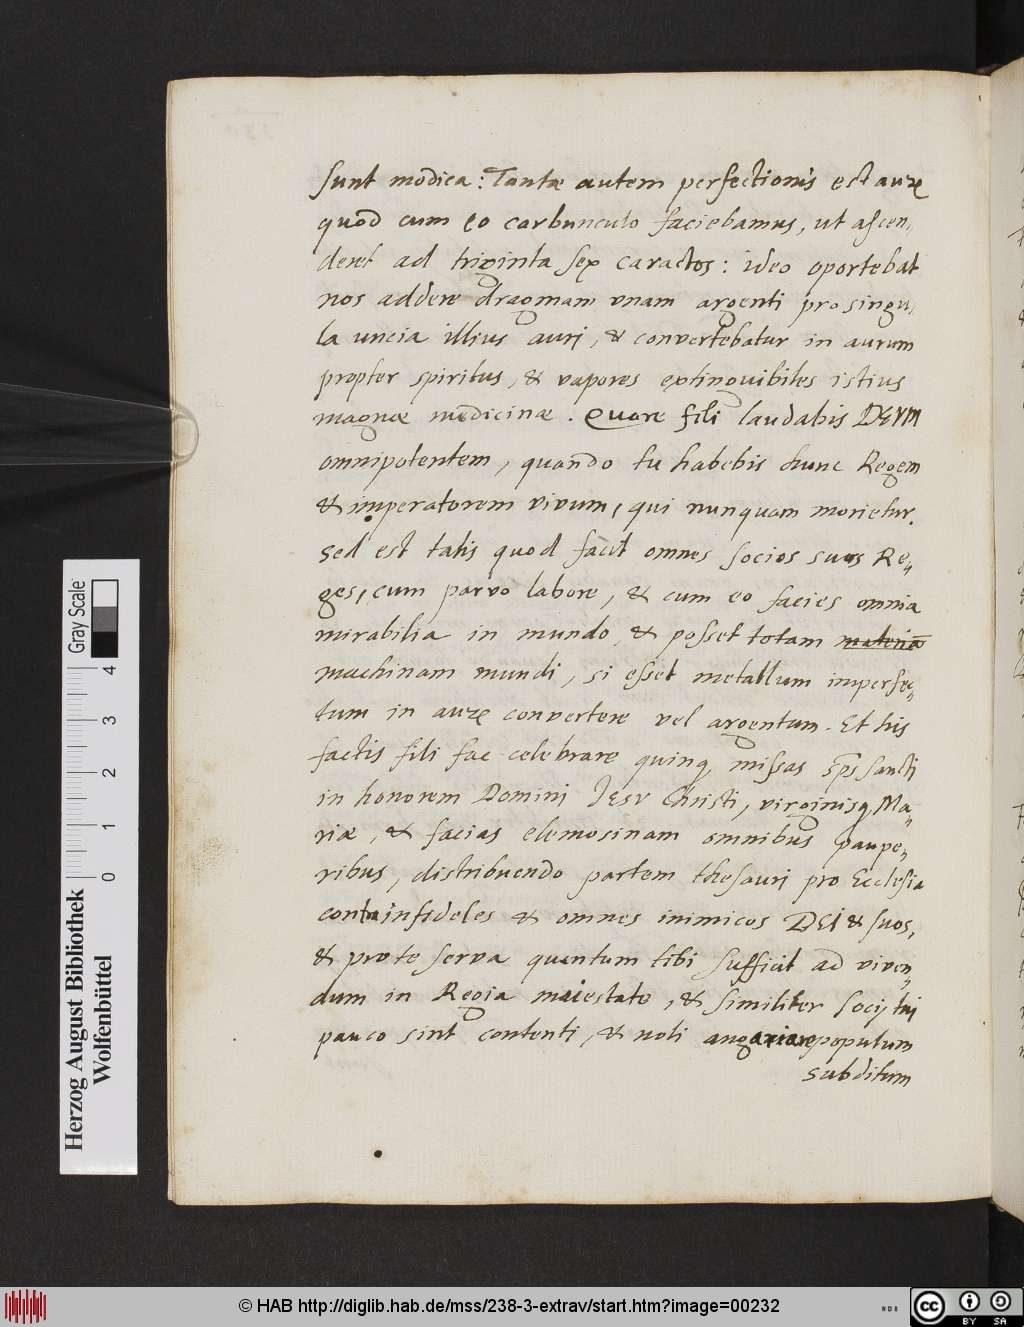 sunt modica: Tantæ autem perfectionis est auꝝ
quod cum eo carbunculo faciebamus, ut ascen„
deret ad triginta sex caractos: ideo oportebat
nos addere dragmam vnam argenti pro singu„
la uncia illius auri, & convertebatur in aurum
propter spiritus, & vapores extinguibiles istius
magnæ medicinæ. Quare fili laudabis DEVM
omnipotentem, quando tu habebis hunc Regem
& imperatorem vivum, qui nunquam morietur.
sed est talis quod facit omnes socios suos Re„
ges, cum parvo labore, & cum eo facies omnia
mirabilia in mundo, & posset totam materiā
machinam mundi, si esset metallum imperfec„
tum in auꝝ convertere vel argentum. Et his
factis fili fac celebrare quinq missas sp̄s sancti
in honorem Domini Iesv Christi, virginisq Ma„
riæ, & facias elemosinam omnibus paupe„
ribus, distribuendo partem thesauri pro Ecclesia
contra infideles & omnes inimicos DEI & suos,
& pro te serva quantum tibi sufficit ad viven„
dum in Regia maiestate, & similiter socij tui
pauco sint contenti, & noli angariare populum
subditum
Herzog August Bibliothek
Wolfenbüttel
0 1 2 3 4
Gray Scale
© HAB http://diglib.hab.de/mss/238-3-extrav/start.htm?image=00232
cc BY SA